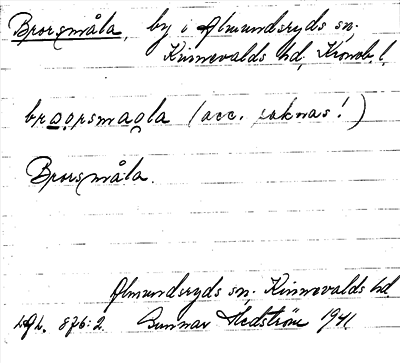 Brorsmåla, by i Almundsryds sn.
Kinnevalds hd, Kronob. l.
braorsmaola (acc. saknas!)
Brorsmåla.
Almundsryds sn. Kinnevalds hd.
876:2. Gunnar Hedström 1941.